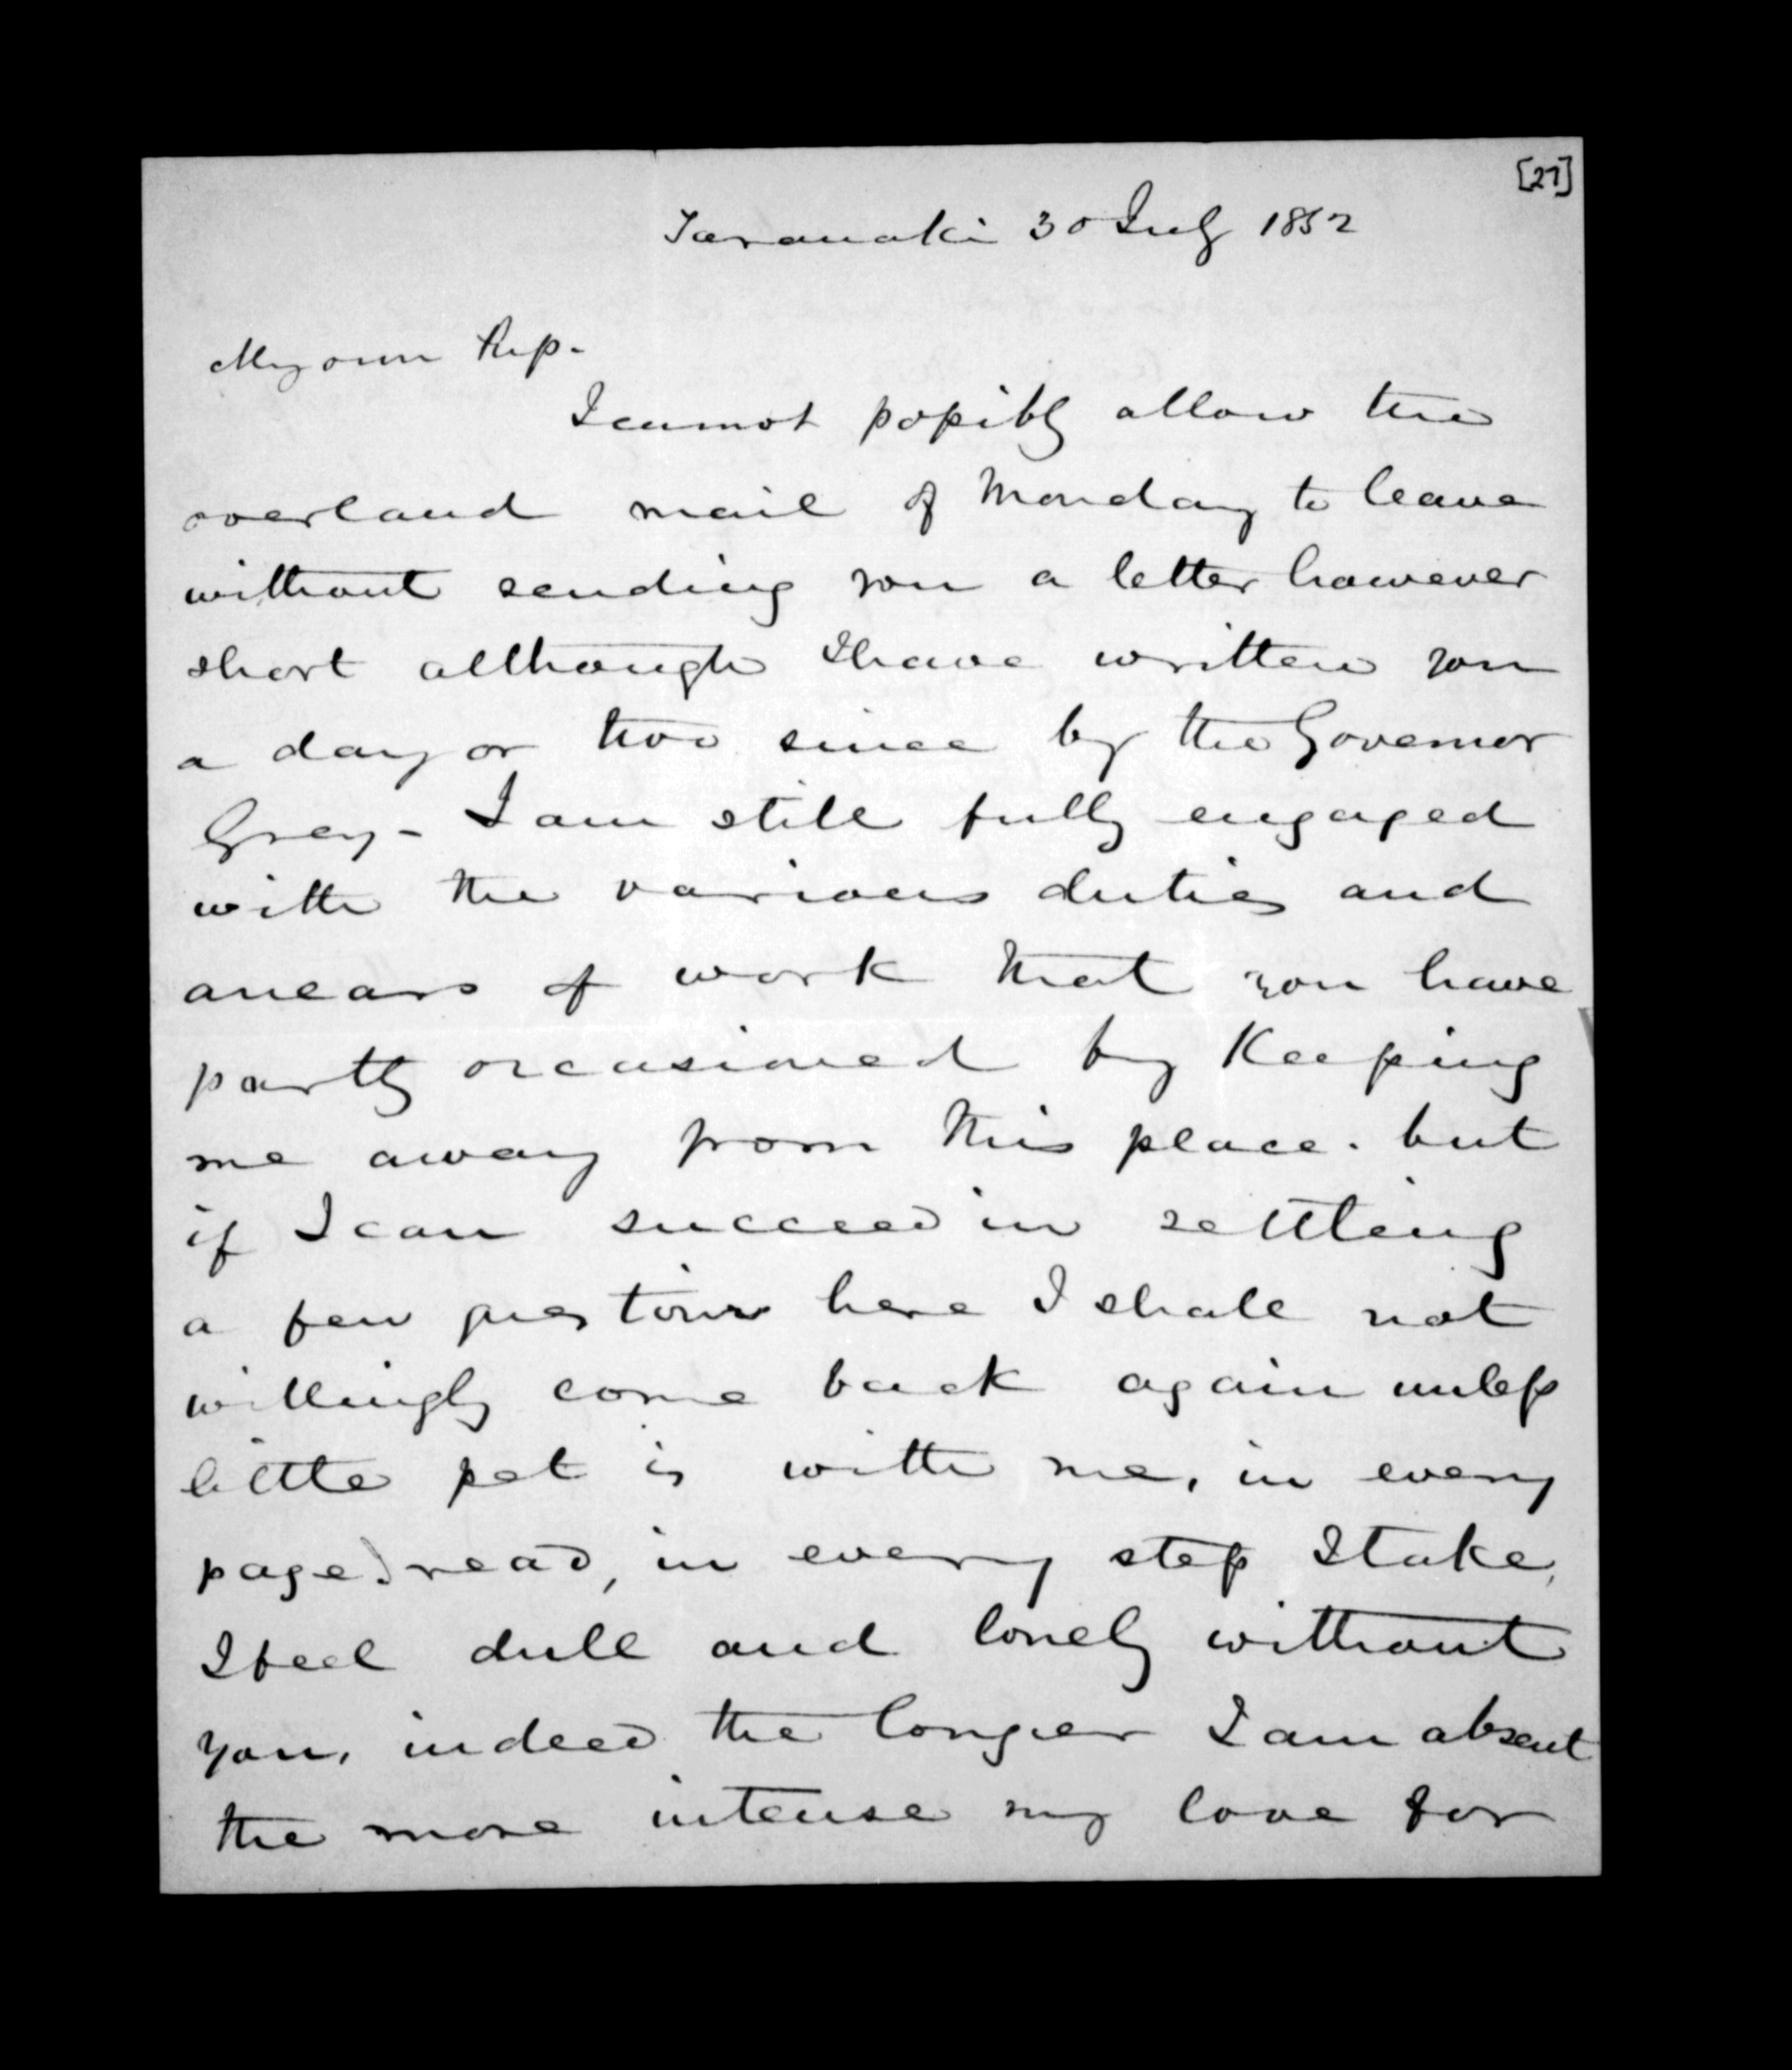 [27]
Taranaki 30 July 1852
My own Rip.
I cannot possibly allow the
overland mail of Monday to leave
without sending you a letter however
short although I have written you
a day or two since by the Governor
Grey - I am still fully engaged
with the various duties and
arrears of work that you have
partly occasioned by keeping
me away from this place. but
if I can succeed in settling
a few questions here I shall not
willingly come back again unless
little pet is with me, in every
page I read, in every step I take,
I feel dull and lonely without
you, indeed the longer I am absent
the more intense my love for